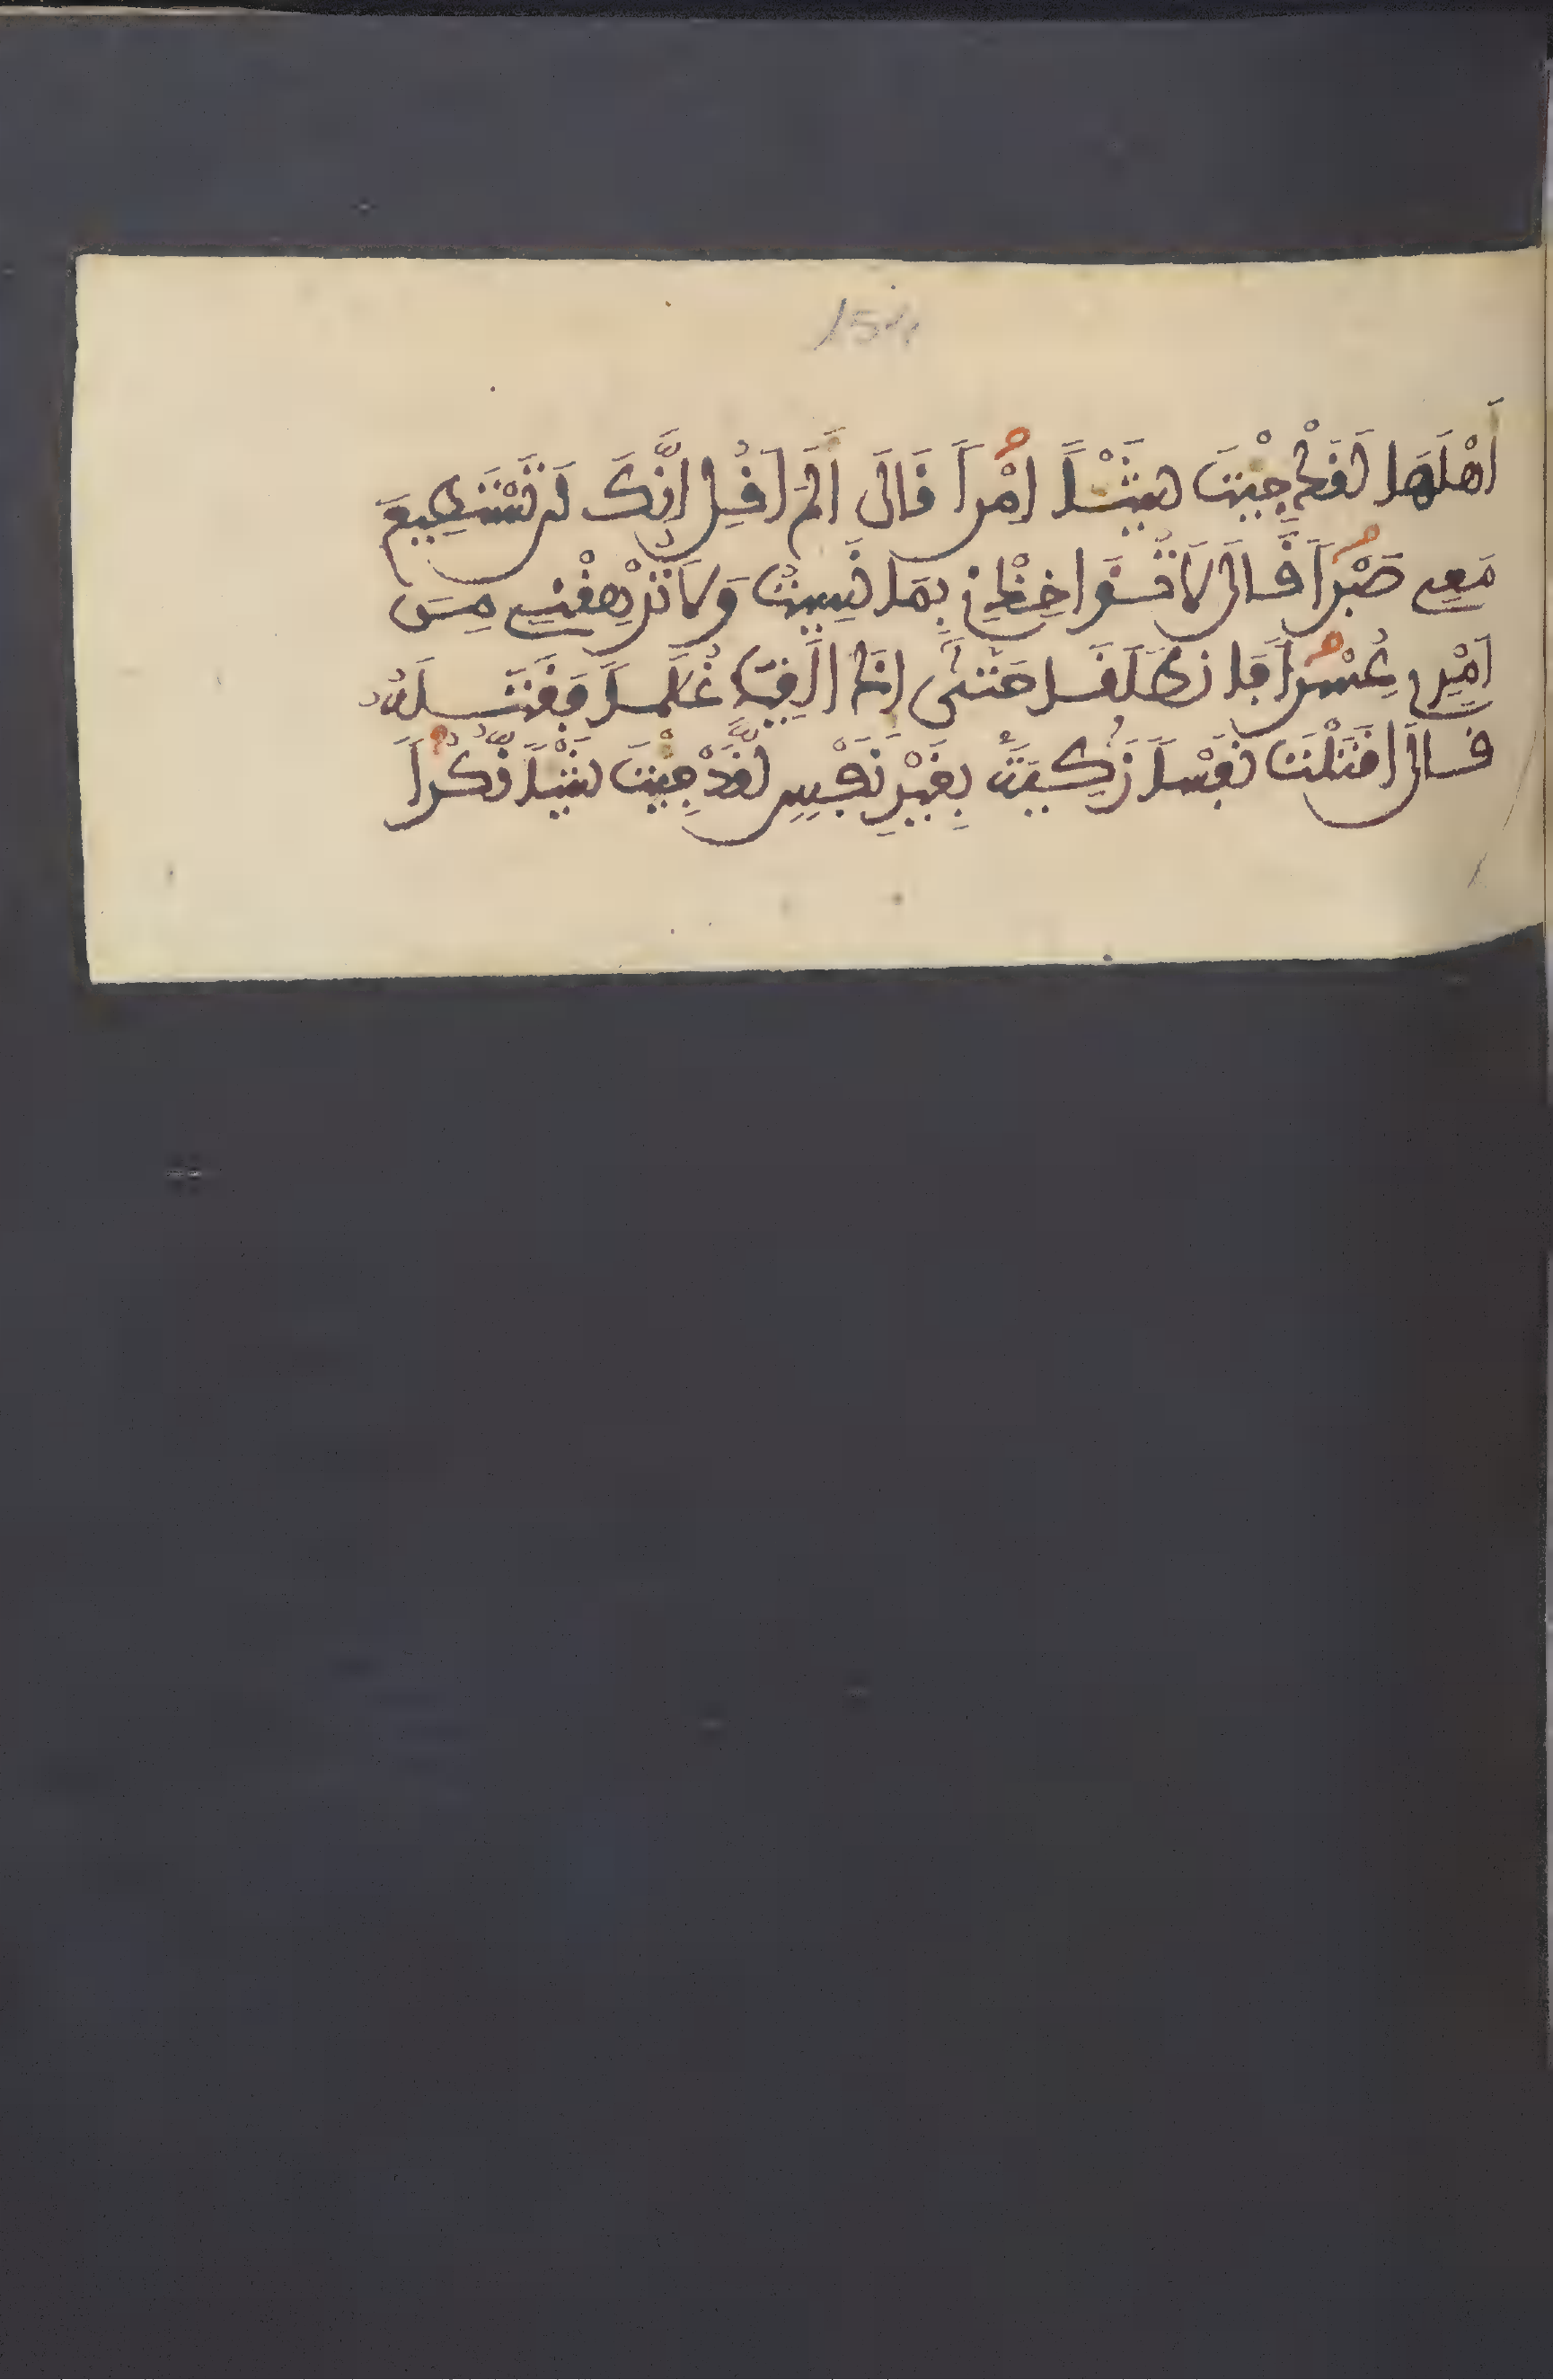 154
أَهْلَهَا لَفَدْ جِئْتَ شَيْـًٔا اِمْرًا فَالَ أَلَمَ اَفُلِ اِنَّكَ لَن تَسْتَطِيعَ
مَعِے صَبْرًا فَالَ لَا تُوَاخِذْنِے بِمَا نَسِيتُ وَلَا تُرْهِفْنِے مِنَ
اَمْرِے عُسْرًا فَانطَلَفَا حَتَّىٰ إِذَا لَفِيَا غُلَٰمًا فَفَتَلَهُۥ
فَالَ افَتَلْتَ نَفْسًا زَٰكِيَةً بِغَيْرِ نَفْسٍ لَّفَدْ جِئْتَ شَيْـًٔا نُّكُرًا